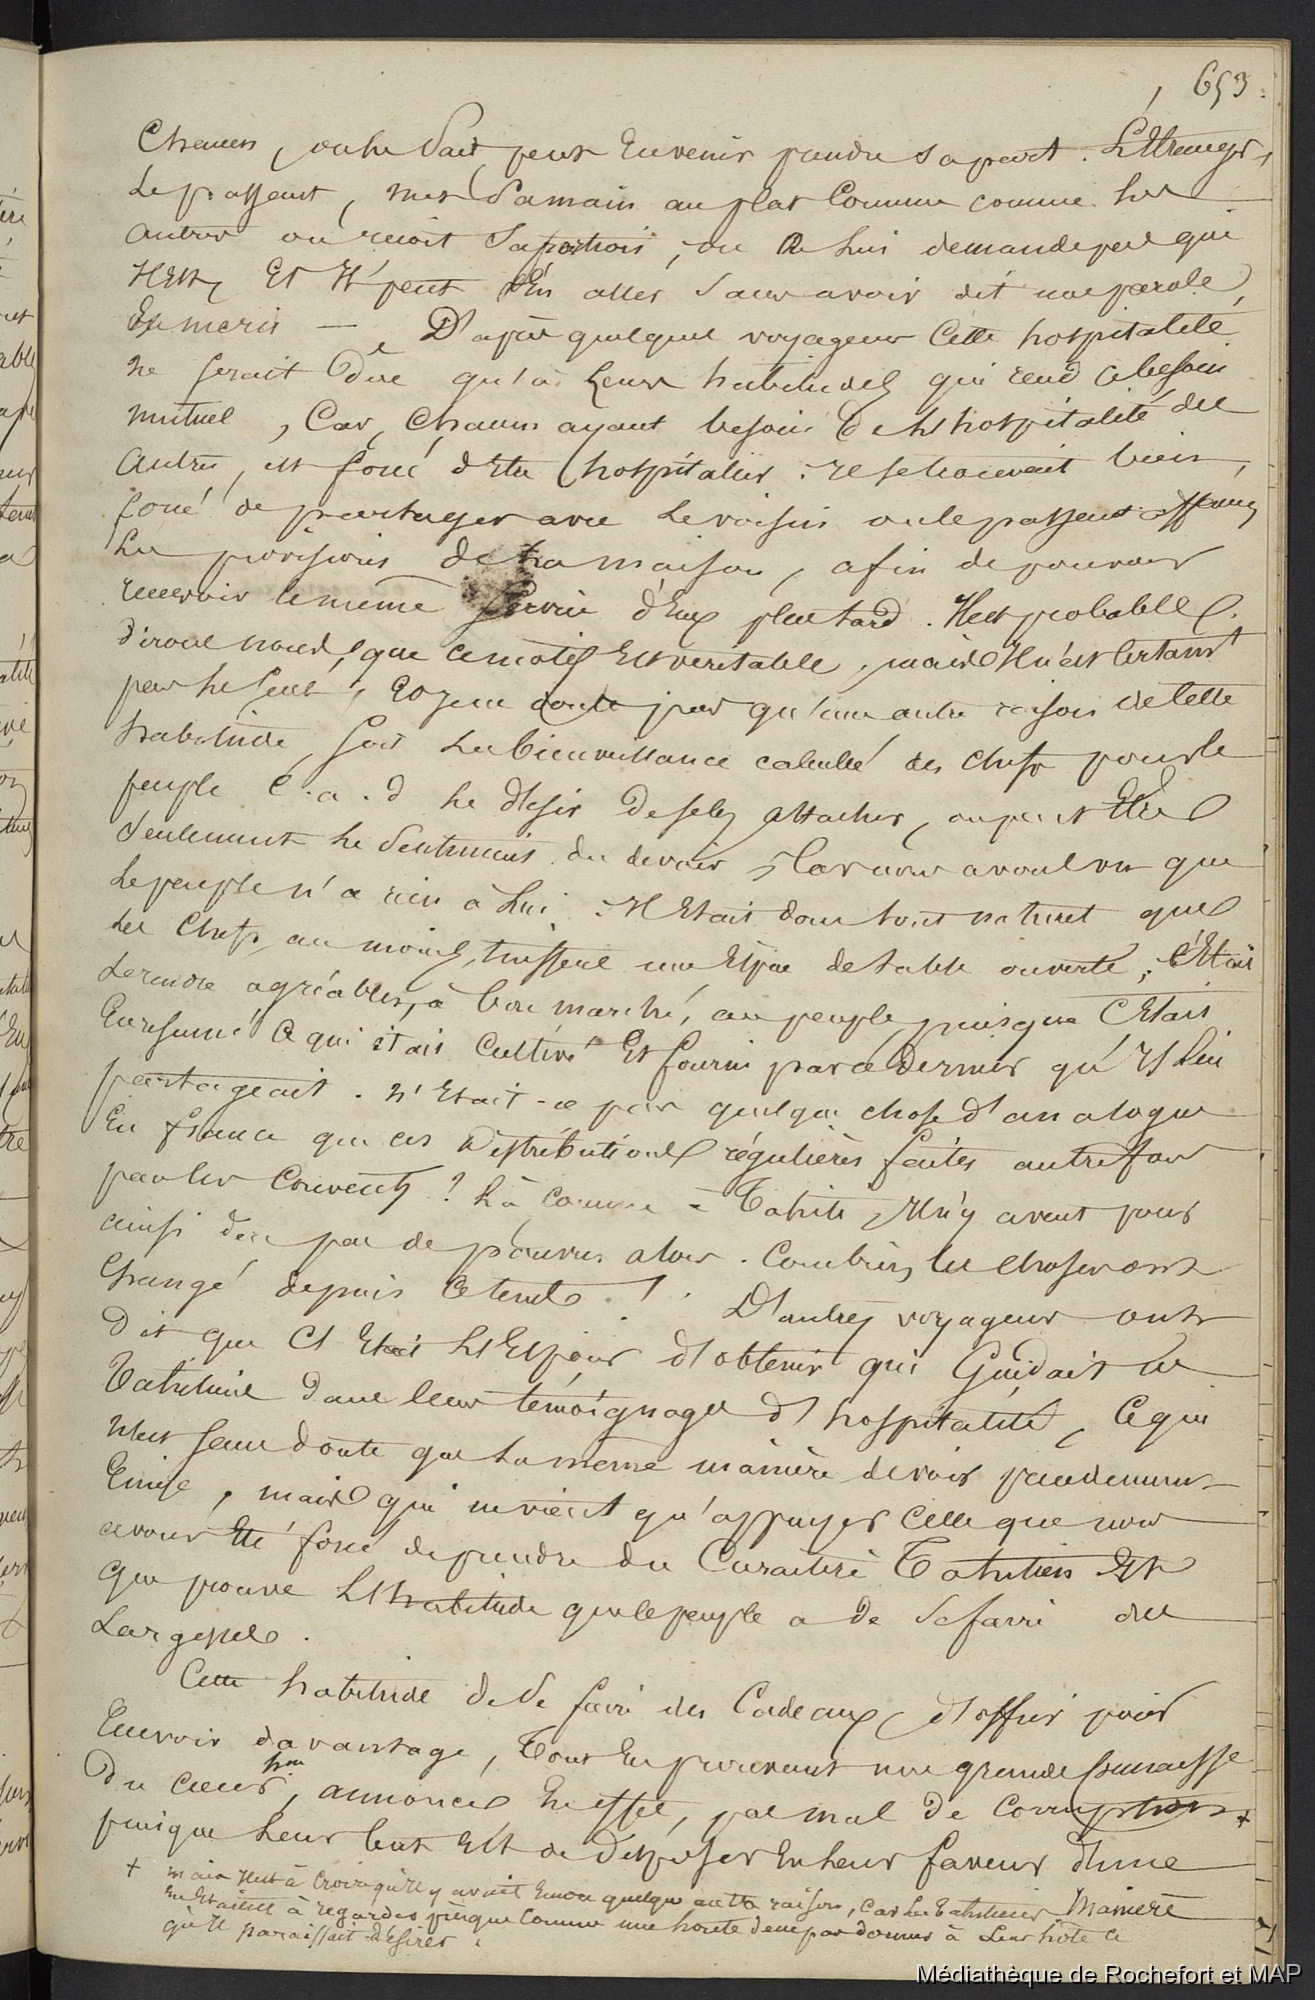 653.
Chacun, on le sait, peut en venir prendre sa part. L'Etranger,
le passant, met sa main au plat commun comme les
autres ou reçoit sa portion, on ne lui demande pas qui
Il est, Et Il peut s'en aller sans avoir dit une parole,
D'après quelques voyageurs cette hospitalité
ne serait due qu'à leurs habitudes qui rend ce besoin
mutuel, Car, chacun ayant besoin de l'hospitalité des
autres, est forcé d'Etre hospitalier : Il se trouverait bien,
forcé de partager avec le voisin ou le passant affamé
les provisions de sa maison, afin de pouvoir
recevoir le même service d'Eux plus tard. Il est probable,
dirons nous, que ce motif Est veritable, mais Il n'est certainst
pas le seul, Et je ne doute pas qu'une autre raison de cette
habitude, soit la bienveillance calculée des chefs pour le
peuple c.a.d le désir de se les attacher, ou peut Etre
seulement le sentiment du devoir, Car nous avons vu que
le peuple n'a rien à lui. Il Etait donc tout naturel que
les Chefs, au moins, tinssent une Espèce de table ouverte ; c'Etait
se rendre agréables, à bon marché, au peuple, puisque c'Etait
En resumé ce qui était cultivé Et fourni par ce dernier qu'Ils lui
partageait. N'Etait-ce pas quelque chose d'analogue
En france que ces distributions régulières faites autrefois
par les Couvents ? Là comme à Tahiti, Il n'y avait pour
ainsi dire pas de pauvres alors. Combien les choses ont
changé depuis ce tems ! . D'autres voyageurs ont
dit que c'Etait l'Espoir d'obtenir qui Guidait les
Tahitiens dans leurs témoignages d'hospitalité, Ce qui
n'est sans doute que la même manière de voir
Emise, mais qui ne vient qu'appuyer celle que nous
avons Eté forcé de prendre du Caractère Tahitien Et
que prouve l'habitude que le peuple a de se faire des
Largesses.
Cette habitude de se faire des Cadeaux, d'offrir pour
recevoir davantage, tout En prouvant une grande
du coeur, annonce En effet, pas mal de corruption +
puisque leur but Est de disposer En leur faveur d'une
Manière
+ mais Il est à croire qu'Il y avait Encore quelque autre raison, car les Tahitiens
En Etaient à regarder presque comme une honte de ne pas donner à leur hôte ce
qu'Il paraissait désirer.
Médiathèque de Rochefort et MAP